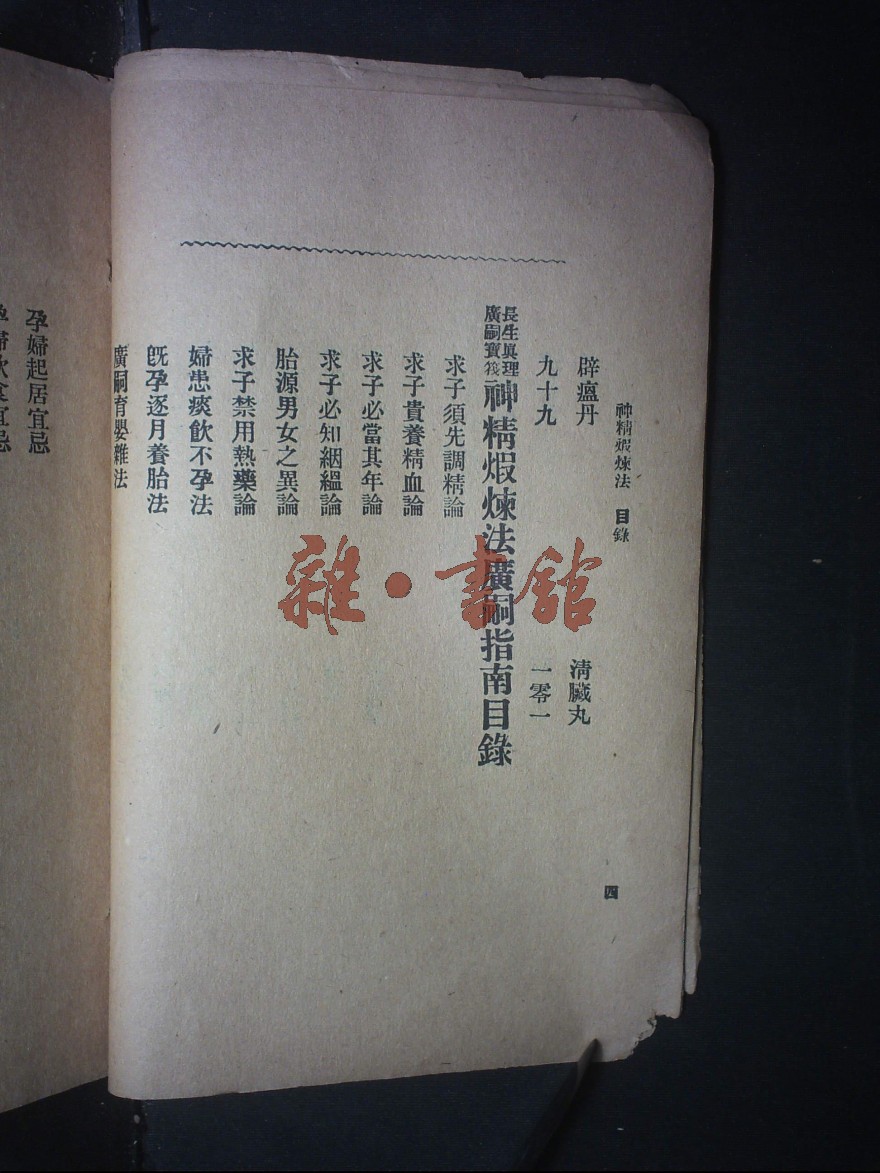 神精煆煉法 目錄
四
辟瘟丹 清臟丸
九十九 一零一
長生眞理
廣嗣寶筏
神精煆煉法廣嗣指南目錄
求子須先調精論
求子貴養精血論
求子必當其年論
求子必知絪縕論
胎源男女之異論
求子禁用熱藥論
婦患痰飲不孕法
旣孕逐月養胎法
廣嗣育嬰雜法
孕婦起居宜忌
孕婦飲食宜忌
雜·書館